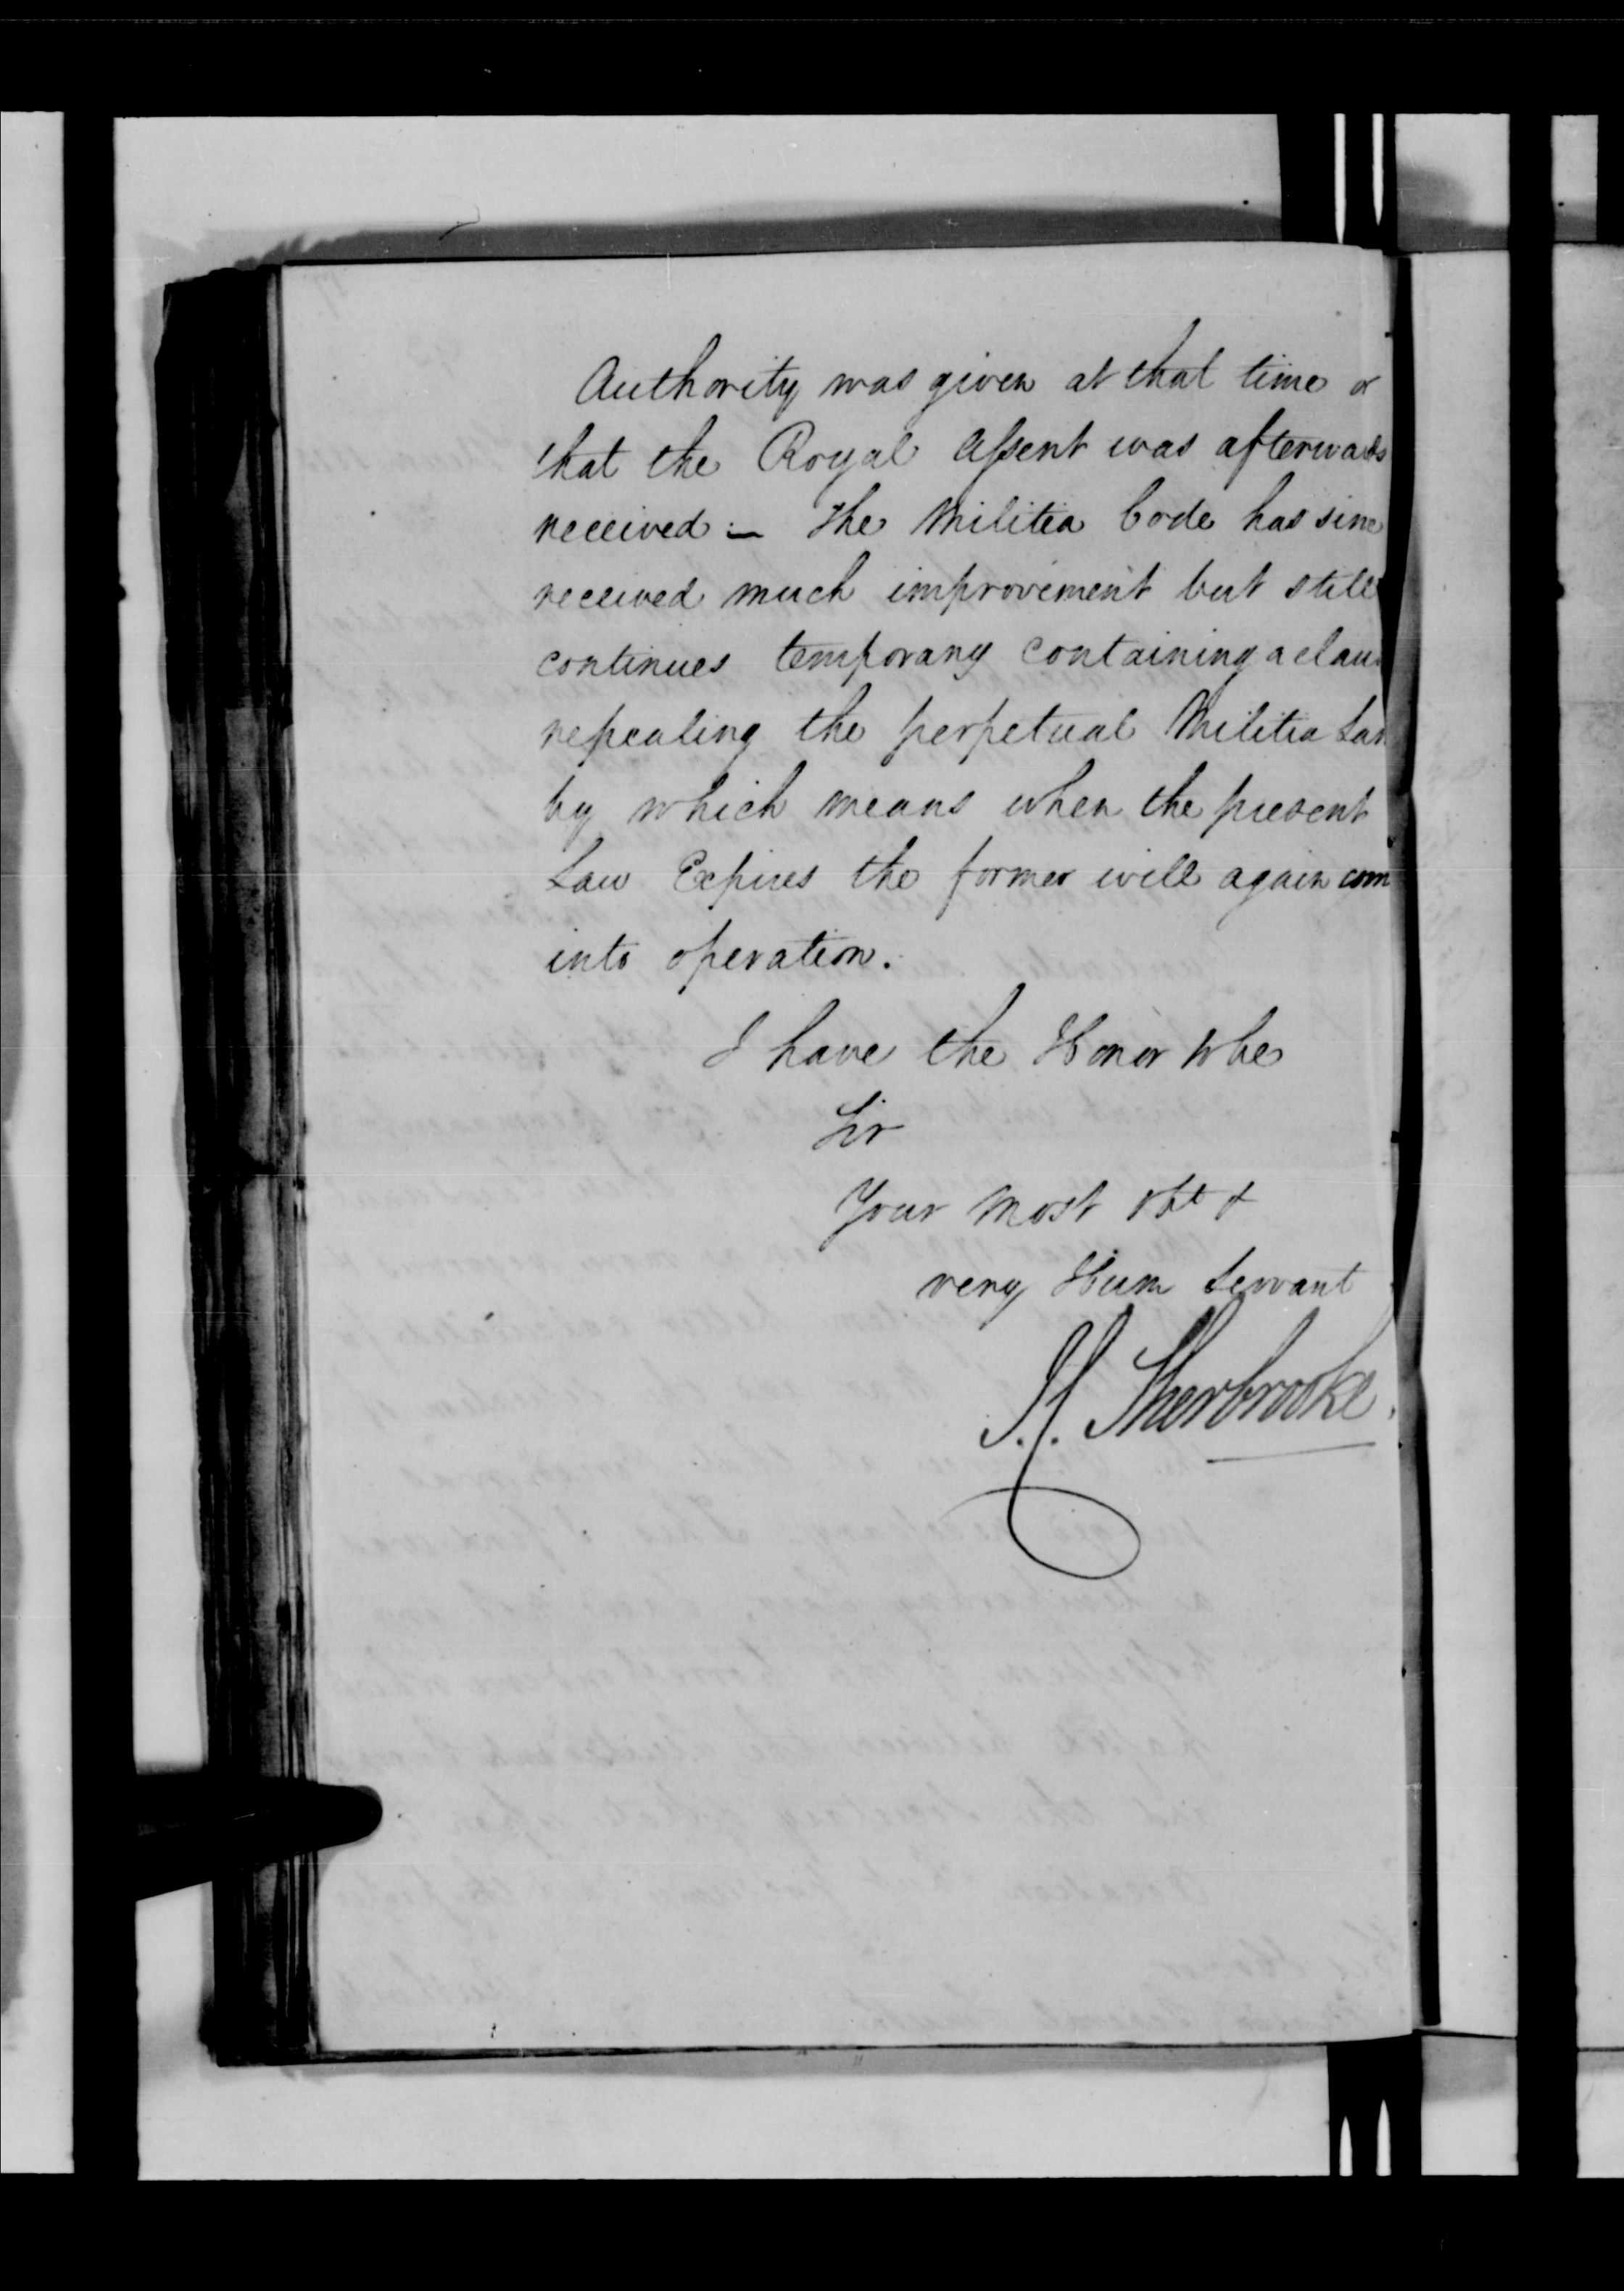 Authority was given at that time or
that the Royal Assent was afterwards
received :— The Militia Code has sinc
received much improvement but still
continues temporary containing a clau
repealing the perpetual Militia Law
by which means when the present
Law Expires the former will again com
into operation.
I have the Honor to be
Sir
Your most obt &
very Hum Servant
J. C. Sherbrooke.